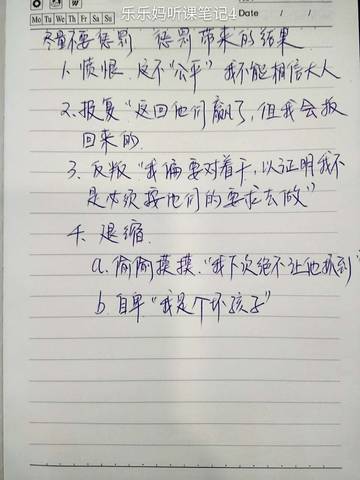 乐乐妈听课笔记4
Mo Tu We Th Fr Sa Su
Date / /
尽量不要惩罚 惩罚带来的结果
1、愤恨、这不"公平" 我不能相信大人
2、报复"这回他们赢了,但我会扳
回来的
3、反叛"我偏要对着干,以证明我不
是必须按他们的要求去做"
4、退缩、
a、偷偷摸摸、"我下次绝不让他抓到"
b、自卑"我是个坏孩子"